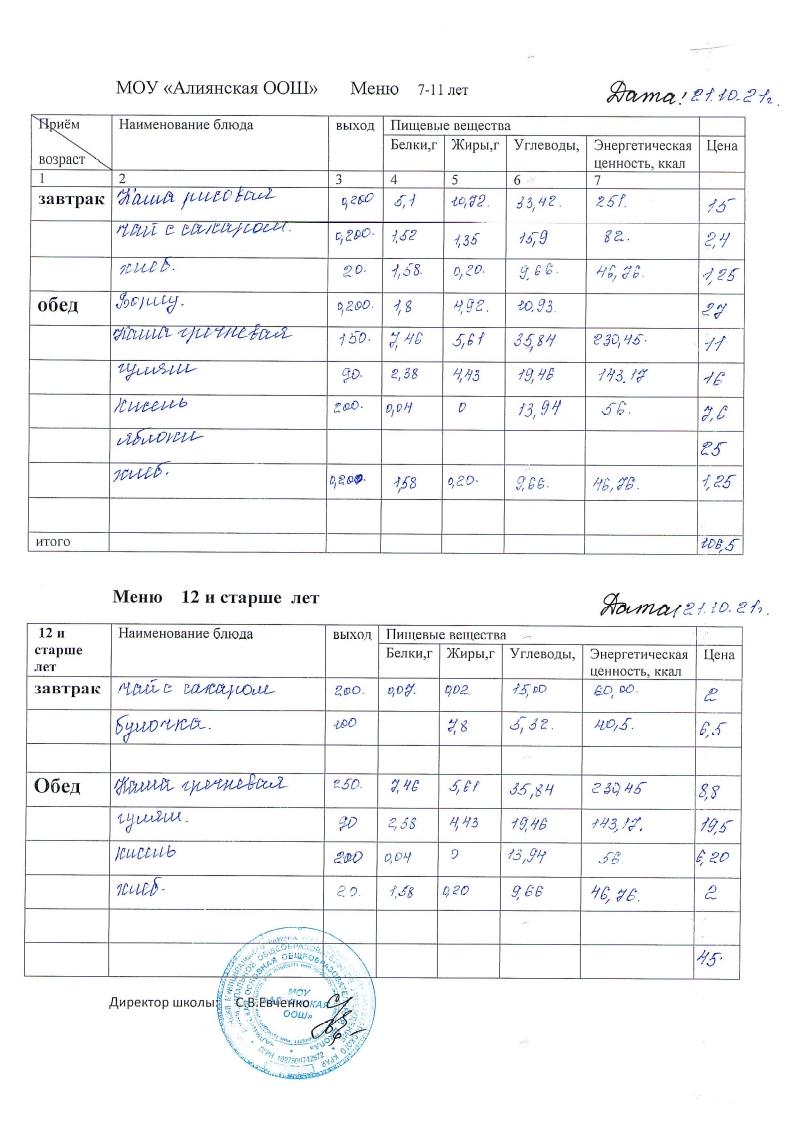 МОУ «Алиянская ООШ» Меню 7-11 лет Дата: 21.10.21г.
Приём возраст Наименование блюда выход Пищевые вещества
Белки,г Жиры,г Углеводы, Энергетическая ценность, ккал Цена
1 2 3 4 5 6 7
завтрак Каша рисовая 0,200 5,1 10,72. 33,42. 251. 15
чай с сахаром. 0,200. 1,52 1,35 15,9 82. 2,4
хлеб. 20. 1,58. 0,20. 9,66. 46,76. 1,25
обед Борщ. 0,200. 1,8 4,92. 10,93. 27
Каша гречневая 150. 7,46 5,61 35,84 230,45. 11
гуляш 90. 2,38 4,43 19,46 143.17 16
кисель 200. 0,04 0 13,94 56. 7,6
яблоки 25
хлеб. 0,200. 1,58 0,20. 9,66. 46,76. 1,25
итого 106,5
Меню 12 и старше лет Дата: 21.10.21г.
12 и старше лет Наименование блюда выход Пищевые вещества
Белки,г Жиры,г Углеводы, Энергетическая ценность, ккал Цена
завтрак чай с сахаром 200. 0,07. 0,02 15,00 60,00. 2
булочка. 100 7,8 5,32. 40,5. 6,5
Обед Каша гречневая 250. 7,46 5,61 35,84 230,45 8,8
гуляш. 90 2,38 4,43 19,46 143,17. 19,5
кисель 200 0,04 0 13,94 56 6,20
хлеб. 20. 1,58 0,20 9,66 46,76. 2
45.
Директор школы: С.В.Евченко
МОУ
ООШ»